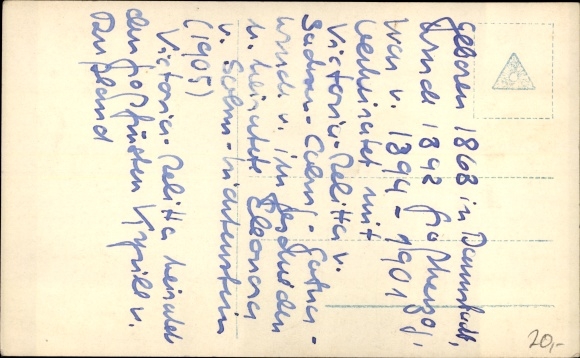 geboren 1868 in Darmstadt,
wurde 1892 Großherzog,
war v. 1894-1901
verheiratet mit
Victoria-Melitta v.
Sachsen-Coburg-Gotha-
wurde v. ihr geschieden
u. heiratete Eleonora
v. Solms-Lichtenstein
(1905)
Victoria-Melitta heiratete
den Großfürsten Kyrill v.
Rußland
20,-